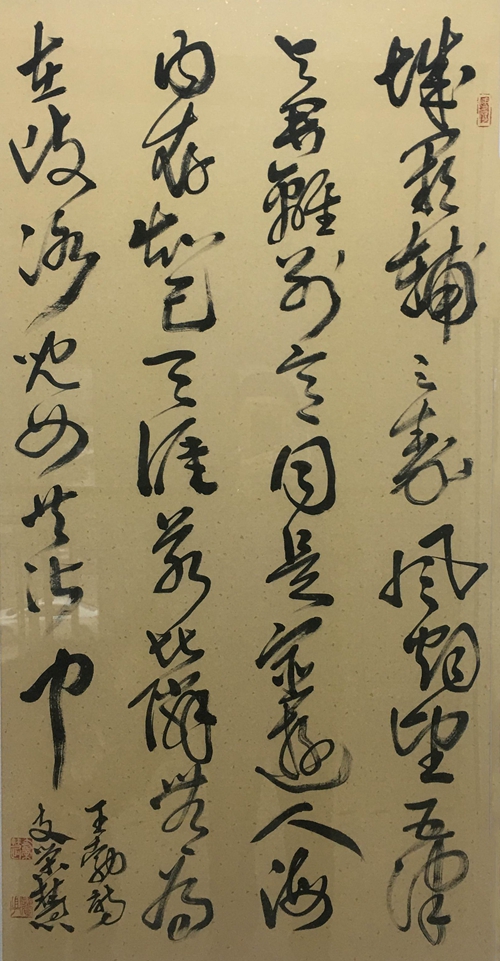 城阙輔三秦风烟望五津
与君離别意同是宦遊人海
内存知己天涯若比鄰無为
在歧路児女共沾巾
王勃詩
荣慧